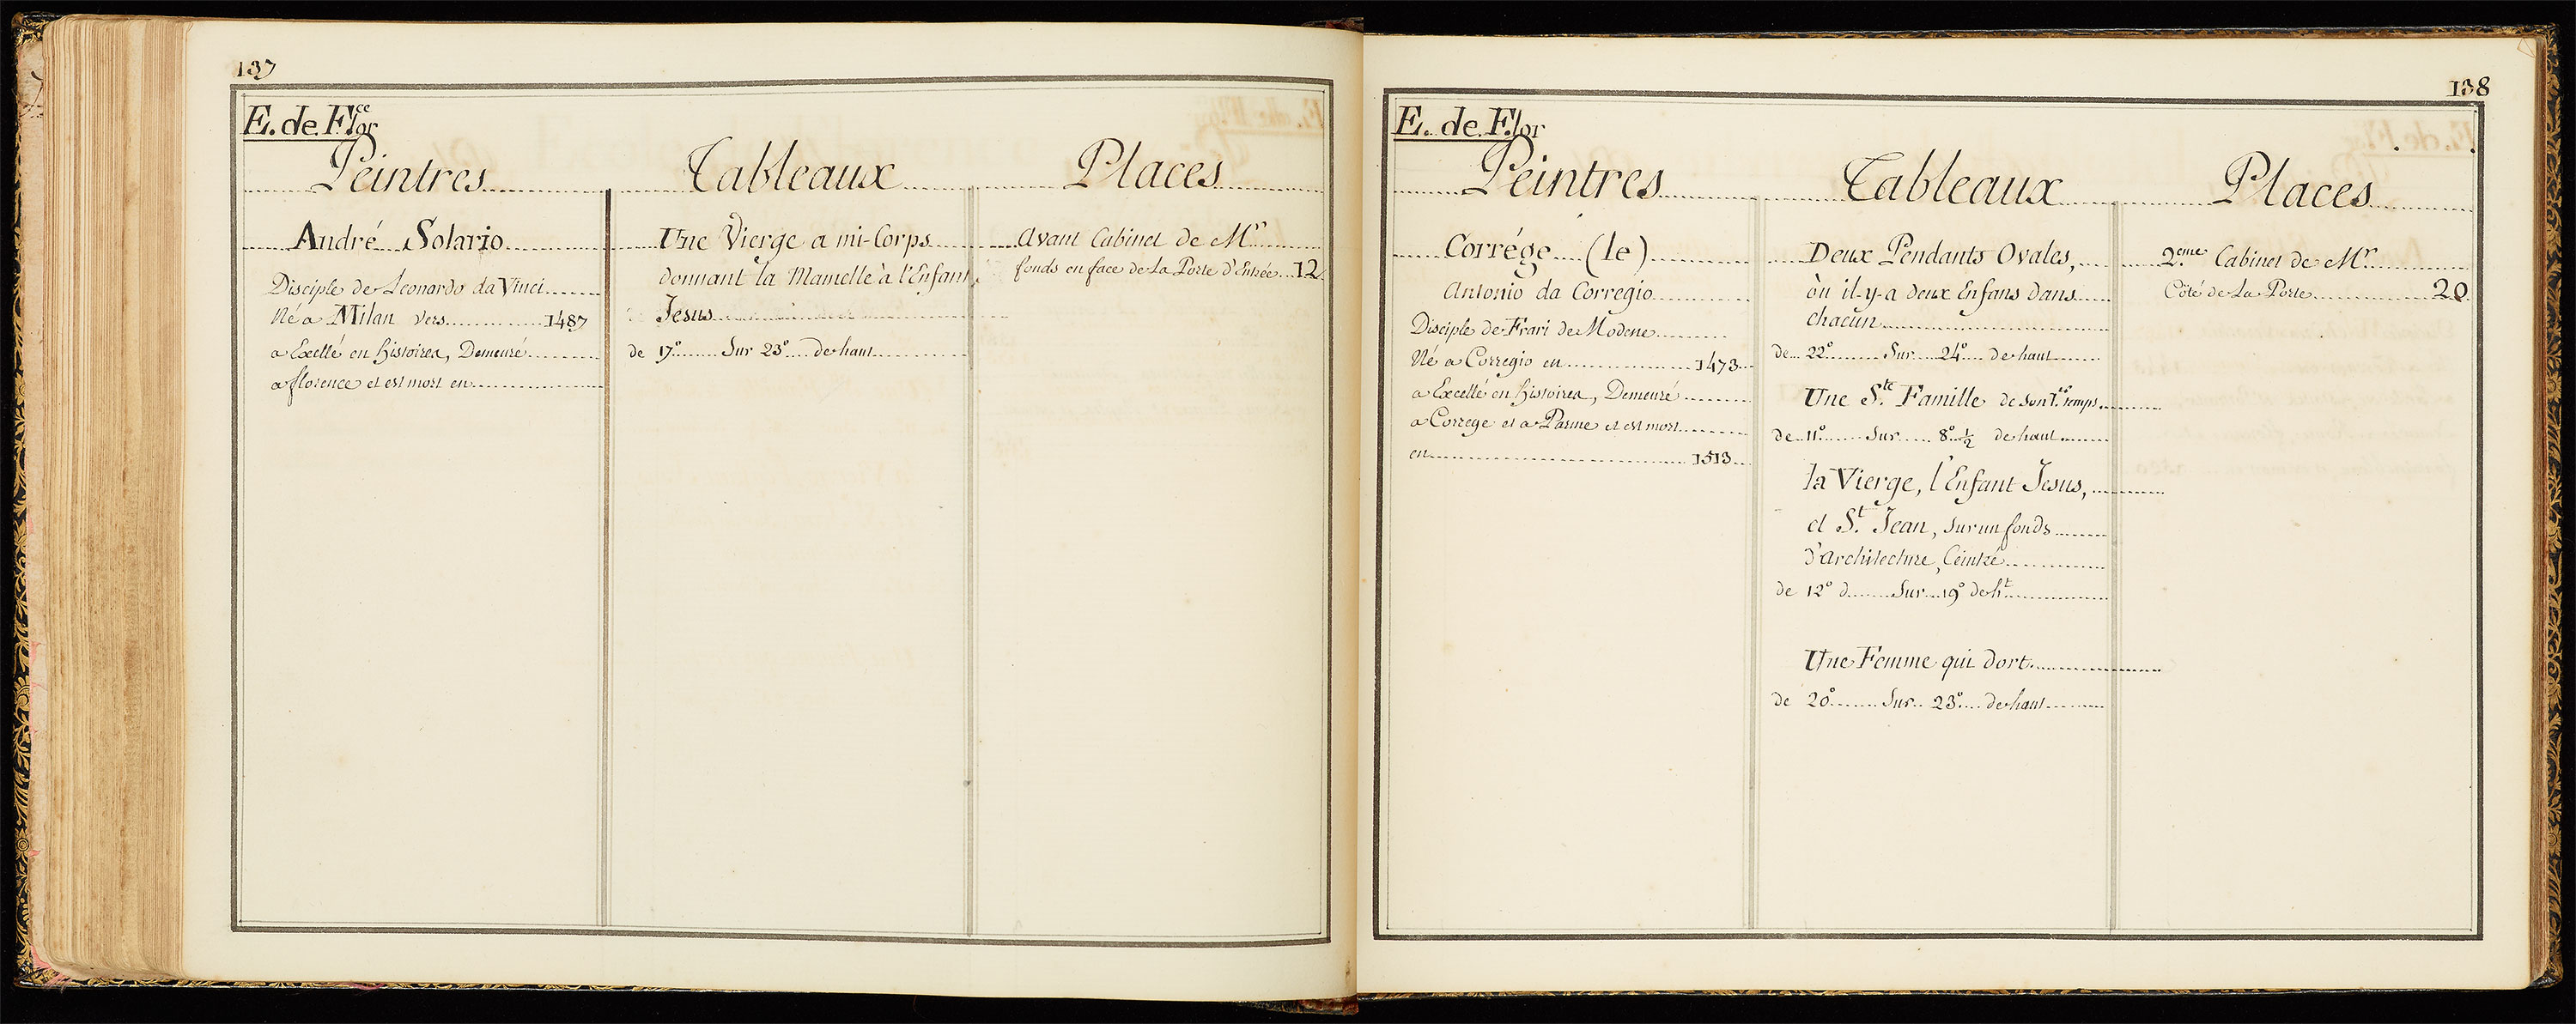 137
E. de Flor ce
Peintres
André Solario
Disciple de Leonardo da Vinci
Né a Milan vers 1487
a Excellé en histoires, Demeuré
a florence et est mort en
Tableaux
Une Vierge a mi-Corps
donnant la Mamelle à l'Enfant
Jesus
de 17° Sur 23° de haut
Places
Avant Cabinet de Mr
fonds en face de La Porte d'Entrée 12
138
E. de Flor
Peintres
Corrége (le)
Antonio da Corregio
Disciple de Frari de Modene
Né a Corregio en 1473
a Excellé en histoires, Demeuré
a Correge et a Parme et est mort
en 1513
Tableaux
Deux Pendants Ovales,
où il-y-a deux Enfans dans
chacun
de 22° Sur 24° de haut
Une Ste Famille de son 1er temps
de 11° Sur 8° 1/2 de haut
la Vierge, l'Enfant Jesus,
et St Jean, sur un fonds
d'architecture, Ceintré
de 12° d Sur 19° de ht
Une Femme qui dort
de 20° Sur 23° de haut
Places
2eme Cabinet de Mr
Côté de La Porte 20